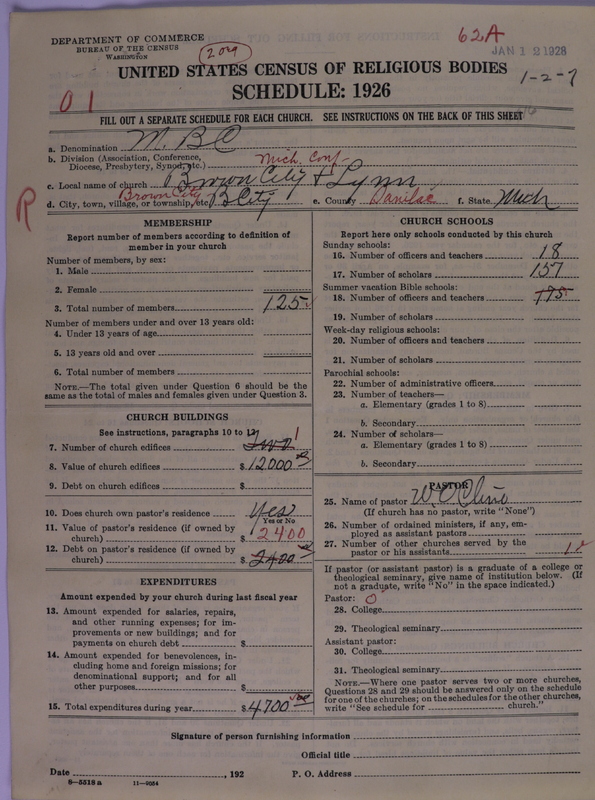 DEPARTMENT OF COMMERCE
BUREAU OF THE CENSUS
WASHINGTON
62A
JAN 12 1928
UNITED STATES CENSUS OF RELIGIOUS BODIES
1-2-7
SCHEDULE: 1926
01
FILL OUT A SEPARATE SCHEDULE FOR EACH CHURCH. SEE INSTRUCTIONS ON THE BACK OF THIS SHEET
a. Denomination M. B C
b. Division (Association, Conference, Diocese, Presbytery, Synod, etc.) Mich. Conf-
c. Local name of church Brown City & Lynn
d. City, town, village, or township, etc. Brown City B City e. County Sanilac f. State Mich
R
MEMBERSHIP
Report number of members according to definition of member in your church
Number of members, by sex:
1. Male
2. Female
3. Total number of members 125
Number of members under and over 13 years old:
4. Under 13 years of age
5. 13 years old and over
6. Total number of members
NOTE.—The total given under Question 6 should be the same as the total of males and females given under Question 3.
CHURCH BUILDINGS
See instructions, paragraphs 10 to 12
7. Number of church edifices Two 1
8. Value of church edifices $ 12000
9. Debt on church edifices $
10. Does church own pastor's residence Yes
Yes or No
11. Value of pastor's residence (if owned by church) $ 2400
12. Debt on pastor's residence (if owned by church) $ 2400
EXPENDITURES
Amount expended by your church during last fiscal year
13. Amount expended for salaries, repairs, and other running expenses; for improvements or new buildings; and for payments on church debt $
14. Amount expended for benevolences, including home and foreign missions; for denominational support; and for all other purposes $
15. Total expenditures during year $ 4700
CHURCH SCHOOLS
Report here only schools conducted by this church
Sunday schools:
16. Number of officers and teachers 18
17. Number of scholars 157
Summer vacation Bible schools:
18. Number of officers and teachers 175
19. Number of scholars
Week-day religious schools:
20. Number of officers and teachers
21. Number of scholars
Parochial schools:
22. Number of administrative officers
23. Number of teachers—
a. Elementary (grades 1 to 8)
b. Secondary
24. Number of scholars—
a. Elementary (grades 1 to 8)
b. Secondary
PASTOR
25. Name of pastor
(If church has no pastor, write "None")
26. Number of ordained ministers, if any, employed as assistant pastors
27. Number of other churches served by the pastor or his assistants 1
If pastor (or assistant pastor) is a graduate of a college or theological seminary, give name of institution below. (If not a graduate, write "No" in the space indicated.)
Pastor: 0
28. College
29. Theological seminary
Assistant pastor:
30. College
31. Theological seminary
NOTE.—Where one pastor serves two or more churches, Questions 28 and 29 should be answered only on the schedule for one of the churches; on the schedules for the other churches, write "See schedule for church."
Signature of person furnishing information
Official title
Date , 192 P. O. Address
8—5518 a 11—9034